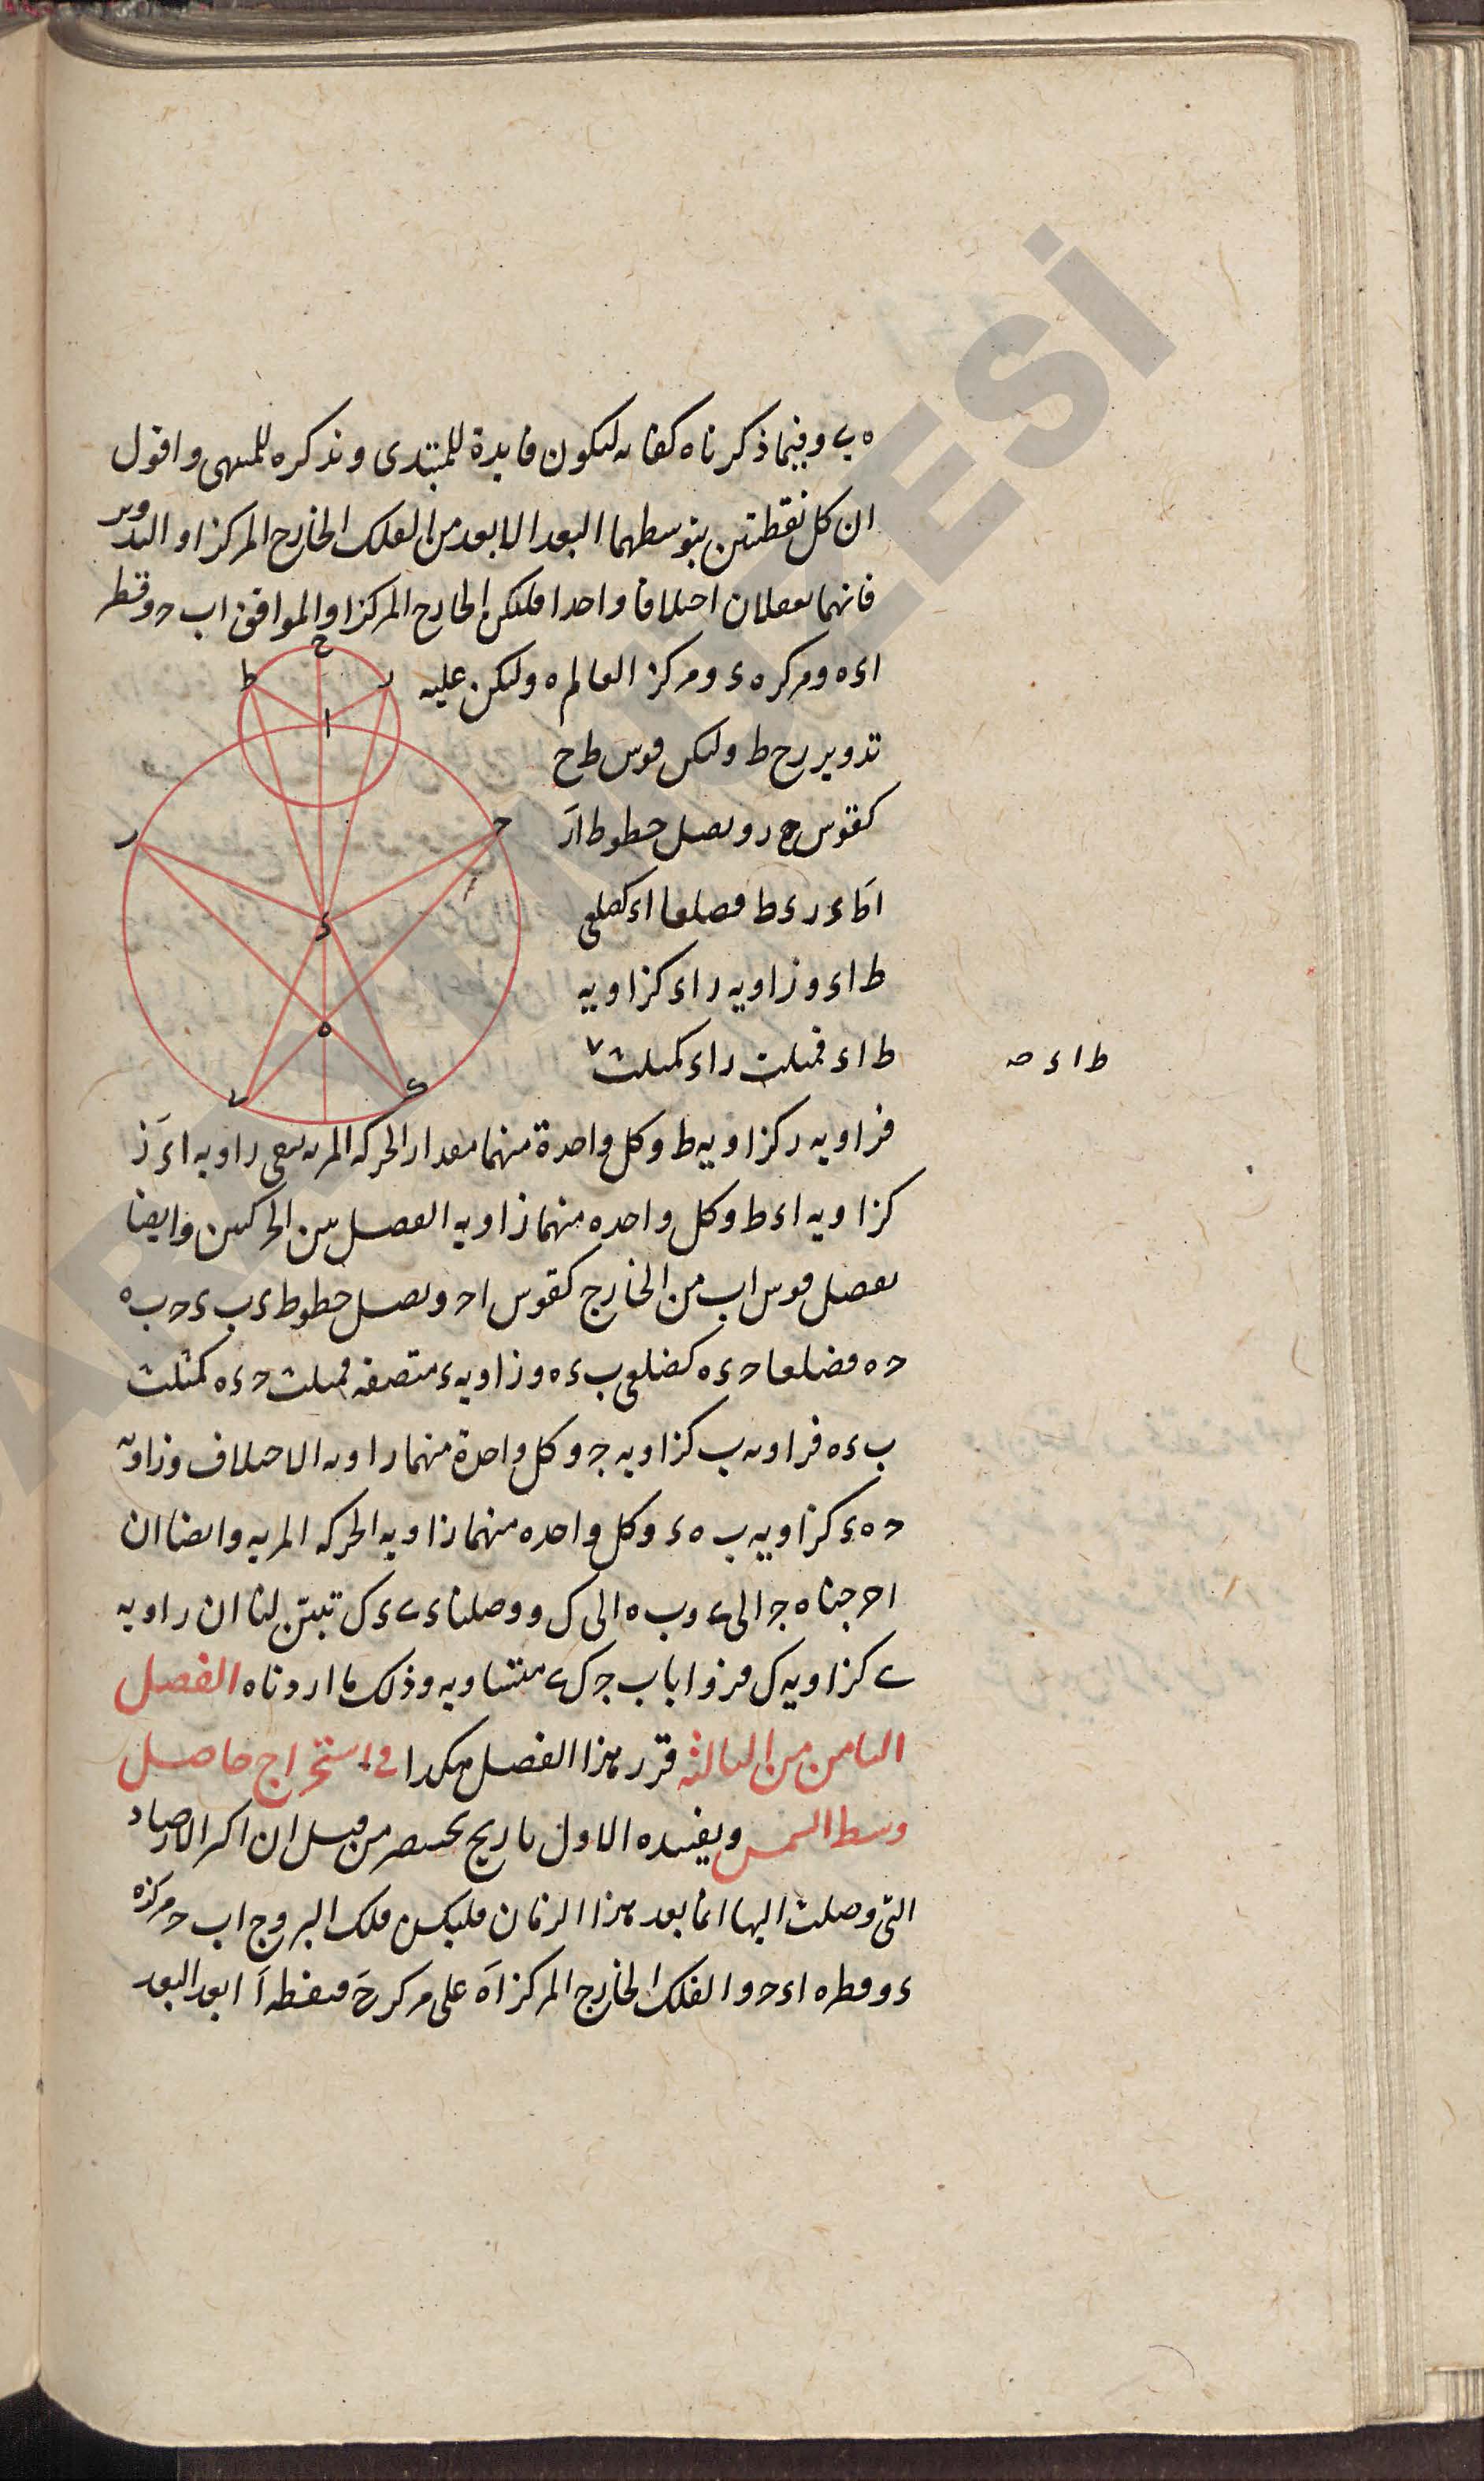 ه ى وفيما ذكرناه كفاية ليكون فايدة للمبتدى وتذكره للمنتهى واقول
ان كل نقطتين يتوسطهما البعد الابعد من الفلك الخارج المركز او التدوير
فانهما يفعلان اختلافا واحدا فليكن الخارج المركز او الموافق اب ح وقطر
ح
اء ه ومركزه ء ومركز العالم ه وليكن عليه
ر
ط
ا
تدوير رح ط وليكن قوس ط ح
كقوس ح ر ونصل خطوط ار
ح
ر
اط ء ر ء ط فضلعا اء كضلعى
ء
ط اء وزاويه ر اء كزاويه
ه
ط اء فمثلث ر اء كمثلث
ط ا ء صح
ى
فزاويه ر كزاويه ط وكل واحدة منهما مقدار الحركه المريه تبقى زاويه اء ز
كزاويه اء ط وكل واحده منهما زاويه الفضل بين الحركتين وايضا
نفصل قوس اب من الخارج كقوس اح ونصل خطوط ء ب ء ح ب ه
ح ه فضلعا ح ء ه كضلعى ب ء ه وزاويه ء متصفه فمثلث ح ء ه كمثلث
ب ء ه فزاويه ب كزاويه ج وكل واحدة منهما زاويه الاختلاف وزاويه
ح ه ء كزاويه ب ه ء وكل واحده منهما زاويه الحركه المريه وايضا ان
اخرجنا ه ج الى ى وب ه الى ك ووصلنا ء ى ء ك تبين لنا ان زاويه
ى كزاويه ك فزوايا ب ج ك ى متساويه وذلك ما اردناه الفصل
الثامن من الثالثه قرر هذا الفصل هكذا فى استخراج حاصل
وسط الشمس ويفيده الاول تاريخ بختنصر من قبل ان اكثر الارصاد
التى وصلت اليها انما بعد هذا الزمان فليكن فلك البروج اب ح ومركزه
ء وقطره اء ح والفلك الخارج المركز اه على مركز ح فنقطه ا ابعد البعد